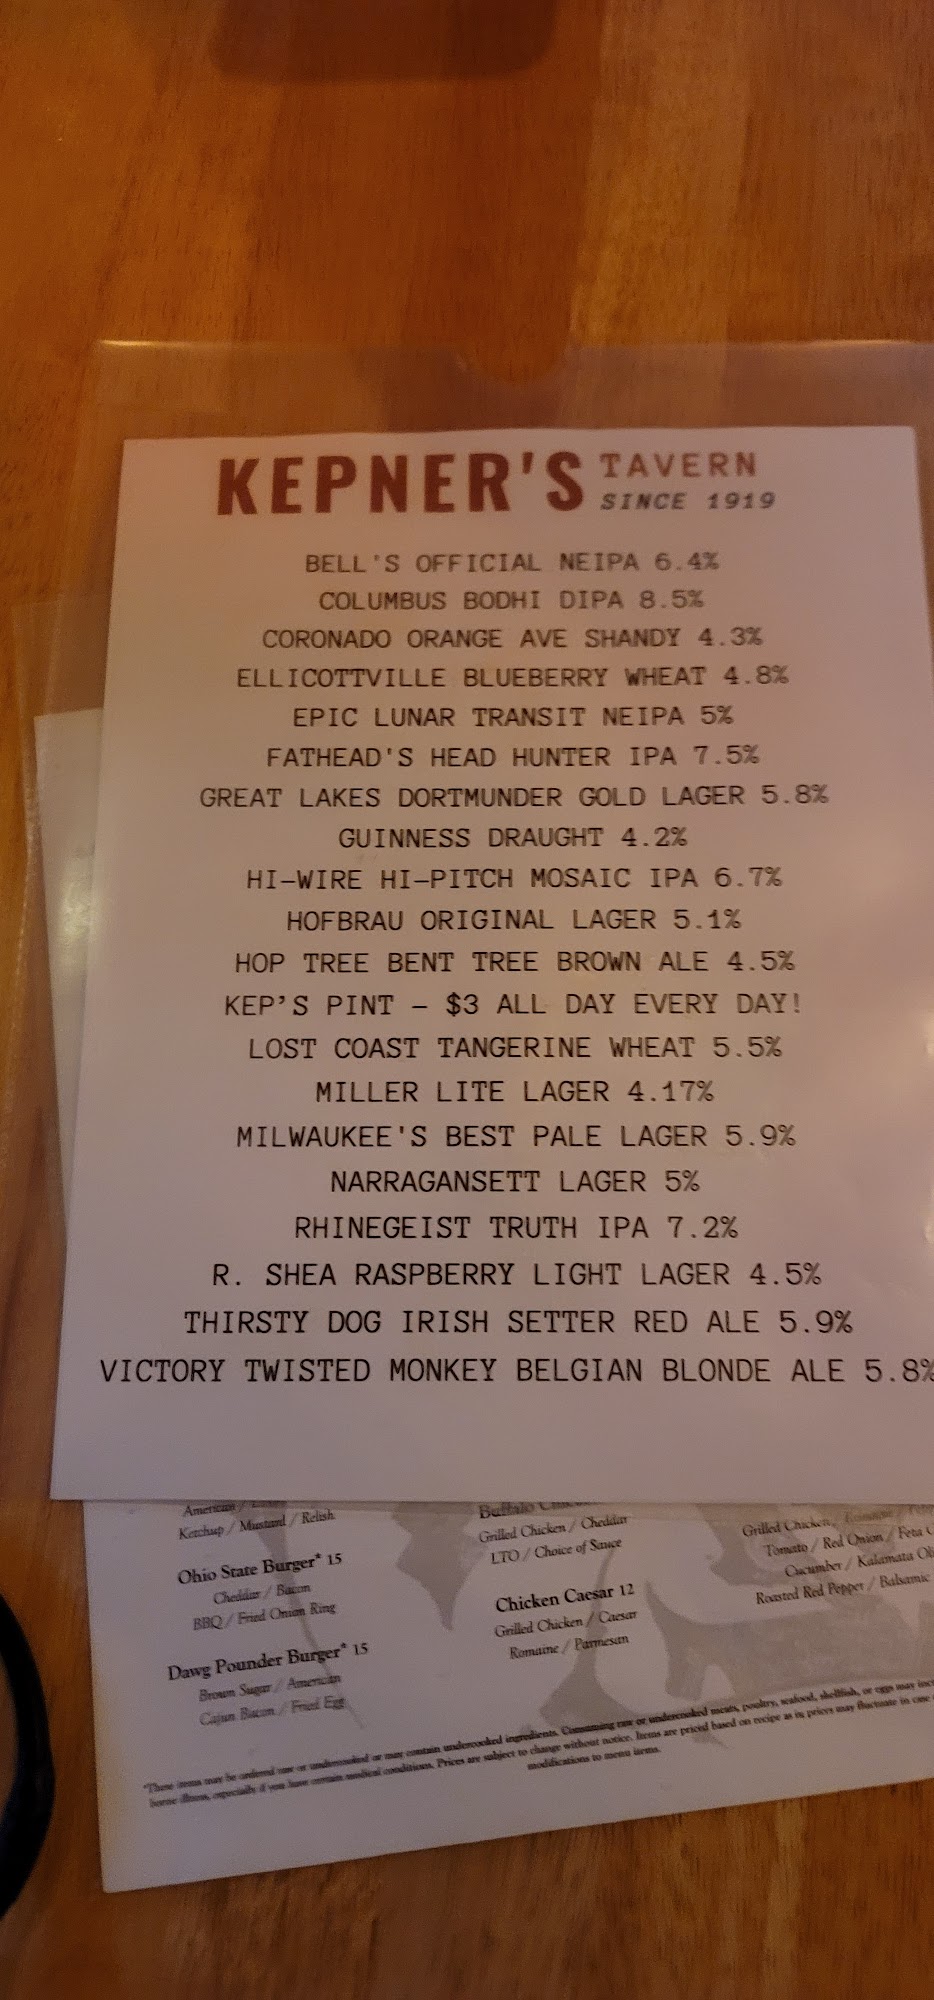 KEPNER'S TAVERN
SINCE 1919
BELL'S OFFICIAL NEIPA 6.4%
COLUMBUS BODHI DIPA 8.5%
CORONADO ORANGE AVE SHANDY 4.3%
ELLICOTTVILLE BLUEBERRY WHEAT 4.8%
EPIC LUNAR TRANSIT NEIPA 5%
FATHEAD'S HEAD HUNTER IPA 7.5%
GREAT LAKES DORTMUNDER GOLD LAGER 5.8%
GUINNESS DRAUGHT 4.2%
HI-WIRE HI-PITCH MOSAIC IPA 6.7%
HOFBRAU ORIGINAL LAGER 5.1%
HOP TREE BENT TREE BROWN ALE 4.5%
KEP'S PINT – $3 ALL DAY EVERY DAY!
LOST COAST TANGERINE WHEAT 5.5%
MILLER LITE LAGER 4.17%
MILWAUKEE'S BEST PALE LAGER 5.9%
NARRAGANSETT LAGER 5%
RHINEGEIST TRUTH IPA 7.2%
R. SHEA RASPBERRY LIGHT LAGER 4.5%
THIRSTY DOG IRISH SETTER RED ALE 5.9%
VICTORY TWISTED MONKEY BELGIAN BLONDE ALE 5.8%
American /
Ketchup / Mustard / Relish
Ohio State Burger* 15
Cheddar / Bacon
BBQ / Fried Onion Ring
Dawg Pounder Burger* 15
Brown Sugar / American
Cajun Bacon / Fried Egg
Buffalo
Grilled Chicken / Cheddar
LTO / Choice of Sauce
Chicken Caesar 12
Grilled Chicken / Caesar
Romaine / Parmesan
Grilled Chicken,
Tomato / Red Onion / Feta
Cucumber / Kalamata
Roasted Red Pepper / Balsamic
*These items may be ordered raw or undercooked or may contain undercooked ingredients. Consuming raw or undercooked meats, poultry, seafood, shellfish, or eggs may
borne illness, especially if you have certain medical conditions. Prices are subject to change without notice. Items are priced based on recipe as is; prices may fluctuate in case
modifications to menu items.